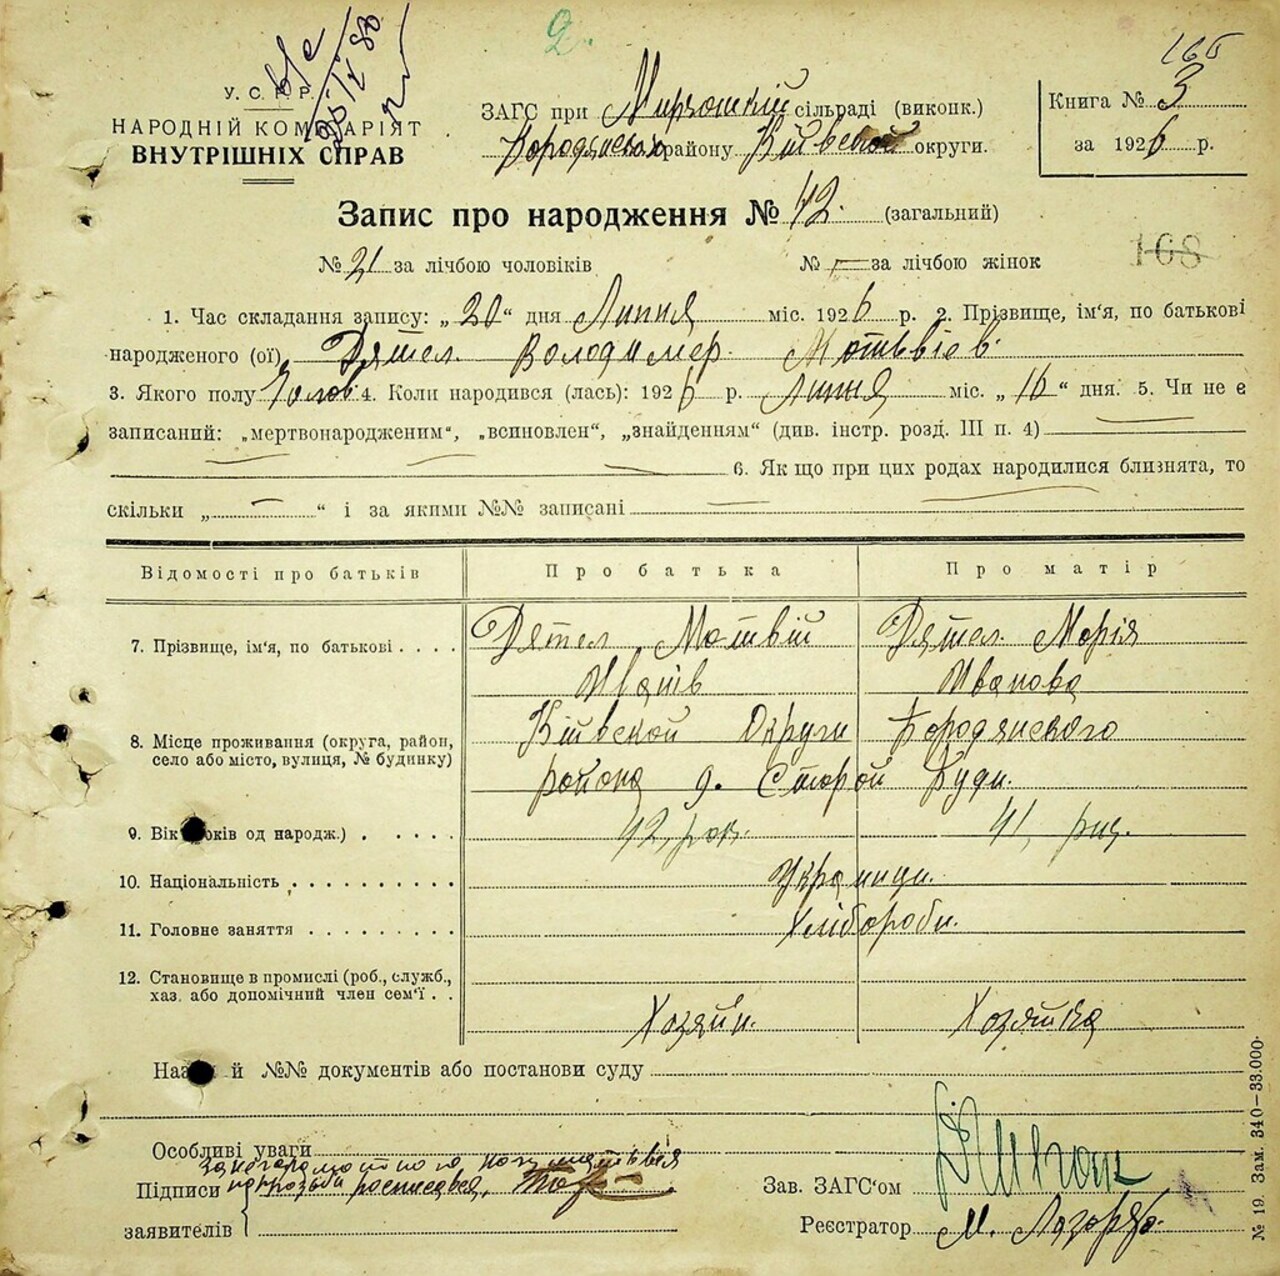 2.
166
У. С. Р. Р.
НАРОДНІЙ КОМІСАРІЯТ
ВНУТРІШНІХ СПРАВ
ЗАГС при Мирчському сільраді (виконк.)
Бородянського району Київської округи.
Книга № 3
за 1926 р.
Запис про народження № 42. (загальний)
№ 21 за лічбою чоловіків № — за лічбою жінок
168
1. Час складання запису: „20“ дня Липня міс. 1926 р. 2. Прізвище, ім‘я, по батькові
народженого (ої) Дятел Володимер Мотьвіев
3. Якого полу Чолов 4. Коли народився (лась): 1926 р. Липня міс. „16“ дня. 5. Чи не є
записаний: „мертвонародженим“, „всиновлен“, „знайденням“ (див. інстр. розд. III п. 4)
6. Як що при цих родах народилися близнята, то
скільки „ — “ і за якими №№ записані —
Відомості про батьків Про батька Про матір
7. Прізвище, ім‘я, по батькові . . . . Дятел Мотвій Дятел Морія
Иванів Иванова
8. Місце проживання (округа, район, Київской Округи Бородянского
село або місто, вулиця, № будинку) района д. Старой Буди.
9. Вік років од народж.) . . . . . 42 рок. 41
10. Національність . . . . . . . . . . Украинци.
11. Головне заняття . . . . . . . . . Хлібороби.
12. Становище в промислі (роб., служб.,
хаз. або допомічний член сем‘ї . . Хозяйн. Хозяйка
Назв й №№ документів або постанови суду
Особливі уваги
за неграмотного
Підписи по прозьби росписався
заявителів
Зав. ЗАГС‘ом
Реєстратор М.
№ 19. Зам. 340—33.000.